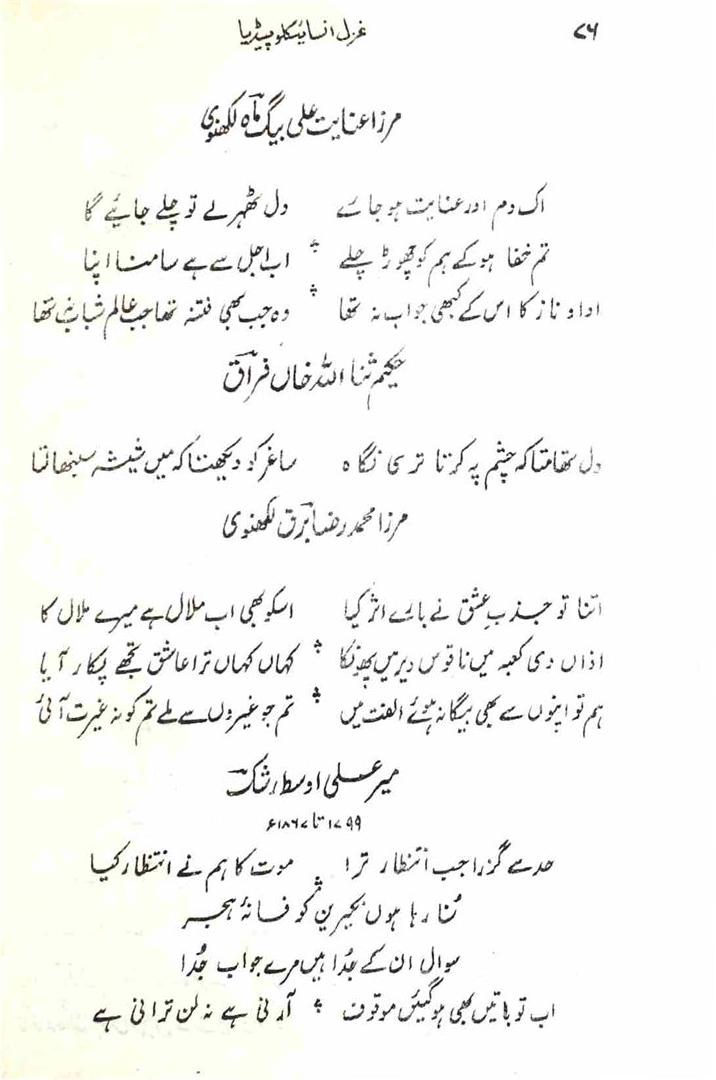 ۷۶ غزل انسائیکلوپیڈیا
مرزا عنایت علی بیگ ماہ لکھنوی
اک دم اور عنایت ہو جائے دل ٹھہرلے تو چلے جائیے گا
تم خفا ہو کے ہم کو چھوڑ چلے اب اجل سے ہے سامنا اپنا
ادا و ناز کا اس کے کبھی جواب نہ تھا وہ جب بھی فتنہ تھا جب عالم شباب نہ تھا
حکیم ثنا اللہ خاں فراق
دل تھامتا کہ چشم پہ کرتا تری نگاہ ساغر کو دیکھتا کہ میں شیشہ سنبھالتا
مرزا محمد رضا برق لکھنوی
اتنا تو جذبِ عشق نے بارے اثر کیا اسکو بھی اب ملال ہے میرے ملال کا
اذاں دی کعبہ میں ناقوس دیر میں پھونکا کہاں کہاں ترا عاشق تجھے پکار آیا
ہم تو اپنوں سے بھی بیگانہ ہوئے الفت میں تم جو غیروں سے ملے تم کو نہ غیرت آئی
میر علی اوسط رشک
۱۷۹۹ تا ۱۸۶۷ء
حد سے گزرا جب انتظار ترا موت کا ہم نے انتظار کیا
سُنا رہا ہوں نکیرین کو فسانۂ ہجر
سوال ان کے جُدا ہیں مرے جواب جُدا
اب تو باتیں بھی ہو گئیں موقوف اَرِنی ہے نہ لن ترانی ہے